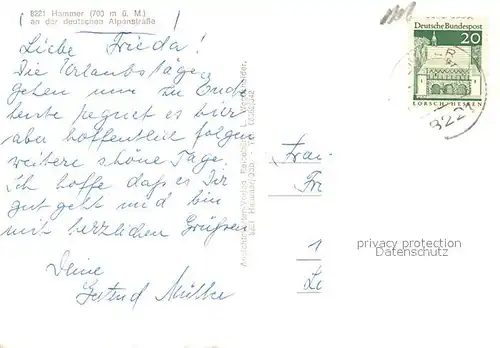 8221 Hammer (703 m ü. M.)
an der deutschen Alpenstraße
Liebe Frieda!
Die Urlaubstäge
gehen nun zu Ende
heute regnet es hier
aber hoffentlich folgen
weitere schöne Tage.
Ich hoffe daß es Dir
gut geht und bin
mit herzlichen Grüßen
Deine
Gertrud
Deutsche Bundespost
20
LORSCH/HESSEN
822
Frau
Fr
1
privacy protection
Datenschutz